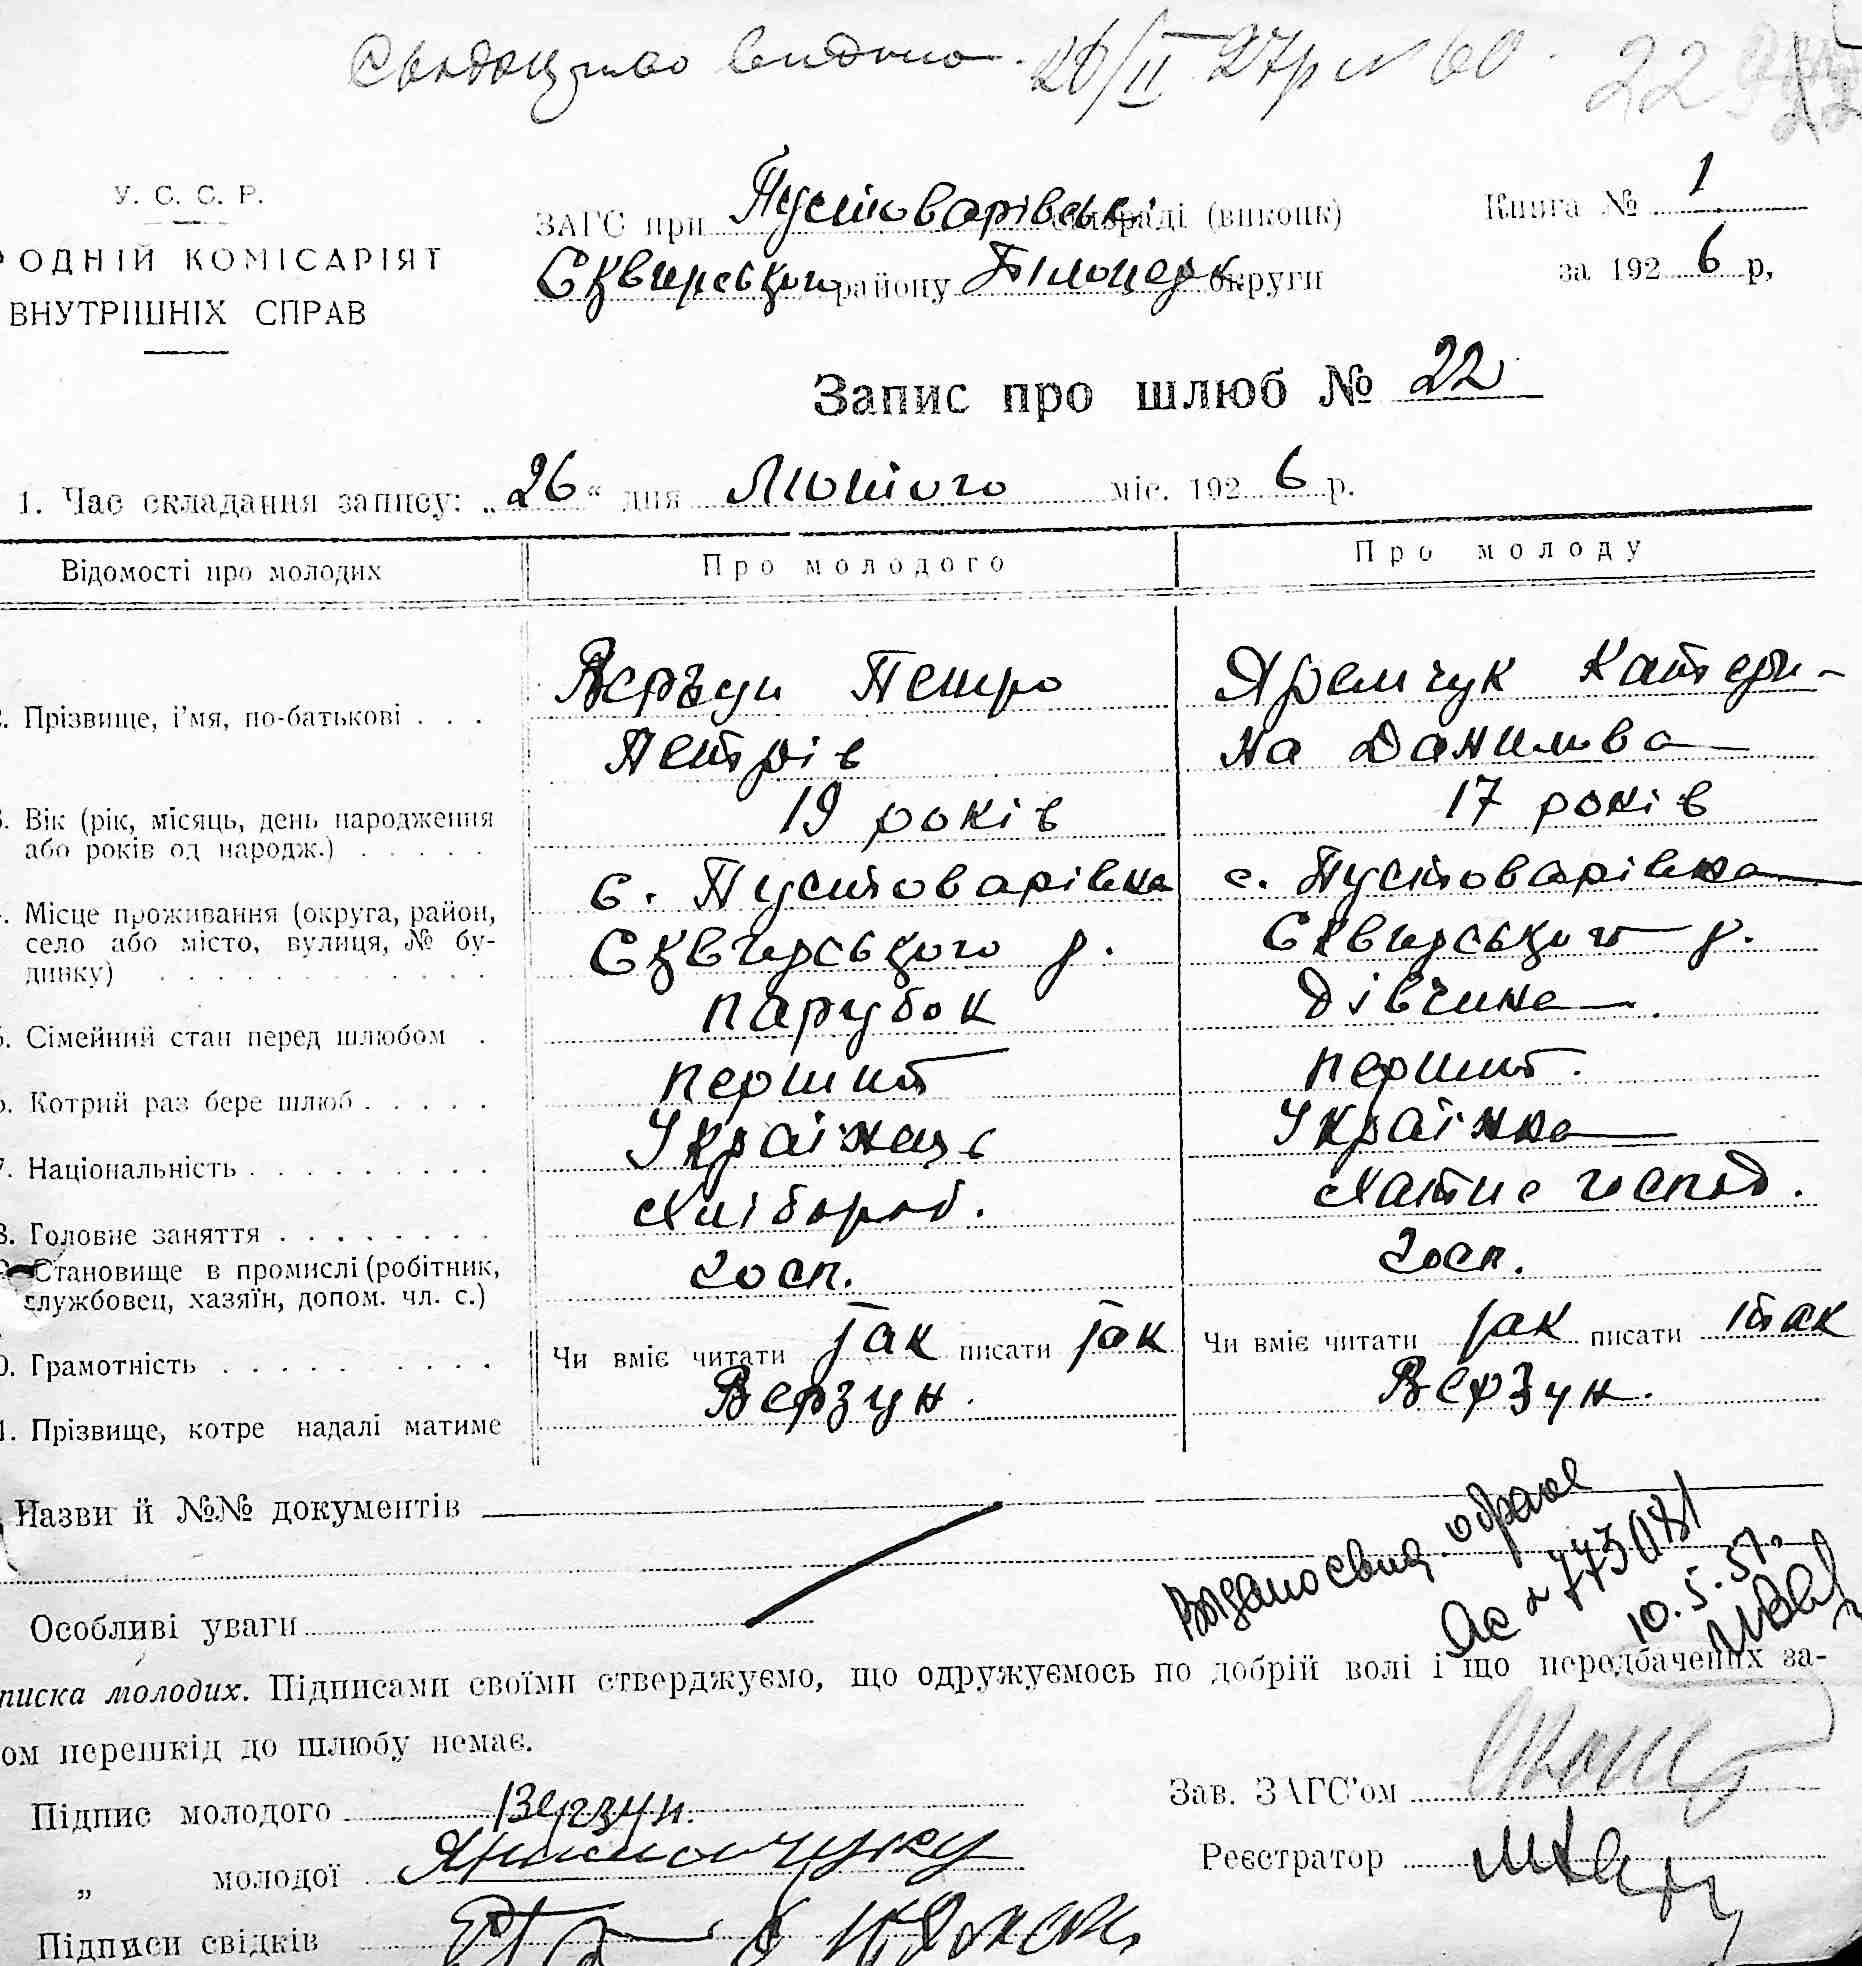 Свидоцтво видано 26/II 27р № 60 22
У. С. С. Р.
РОДНІЙ КОМІСАРІЯТ
ВНУТРІШНІХ СПРАВ
ЗАГС при Пустоварівськ. сільраді (виконк)
Сквирськом району Білоцерк округи
Книга № 1
за 1926 р,
Запис про шлюб № 22
1. Час складання запису: „26“ дня Лютого міс. 1926 р.
Відомості про молодих Про молодого Про молоду
2. Прізвище, і'мя, по-батькові . . .
Петро
Петрів
Яремчук Катери-
на Данилова
3. Вік (рік, місяць, день народження
або років од народж.) . . . . .
19 років
17 років
4. Місце проживання (округа, район,
село або місто, вулиця, № бу-
динку) . . . . . . . . . . . .
с. Пустоварівка
Сквирського р.
с. Пустоварівка
Сквирського р.
5. Сімейний стан перед шлюбом .
парубок
дівчина
6. Котрий раз бере шлюб . . . . .
перший
перший.
7. Національність . . . . . . . . .
Українець
Українка
8. Головне заняття . . . . . . . .
Хлібороб.
Хатнє господ.
9. Становище в промислі (робітник,
службовец, хазяїн, допом. чл. с.)
госп.
госп.
10. Грамотність . . . . . . . . . .
Чи вміє читати так писати так
Чи вміє читати так писати так
11. Прізвище, котре надалі матиме
Верзун.
Верзун.
Назви й №№ документів
Выдано свид. о браке
10.5.51г.
Особливі уваги
писка молодих. Підписами своїми стверджуємо, що одружуємось по добрій волі і що передбачених за-
ом перешкід до шлюбу немає.
Підпис молодого Верзун.
„ молодої
Підписи свідків
Зав. ЗАГС'ом
Реєстратор